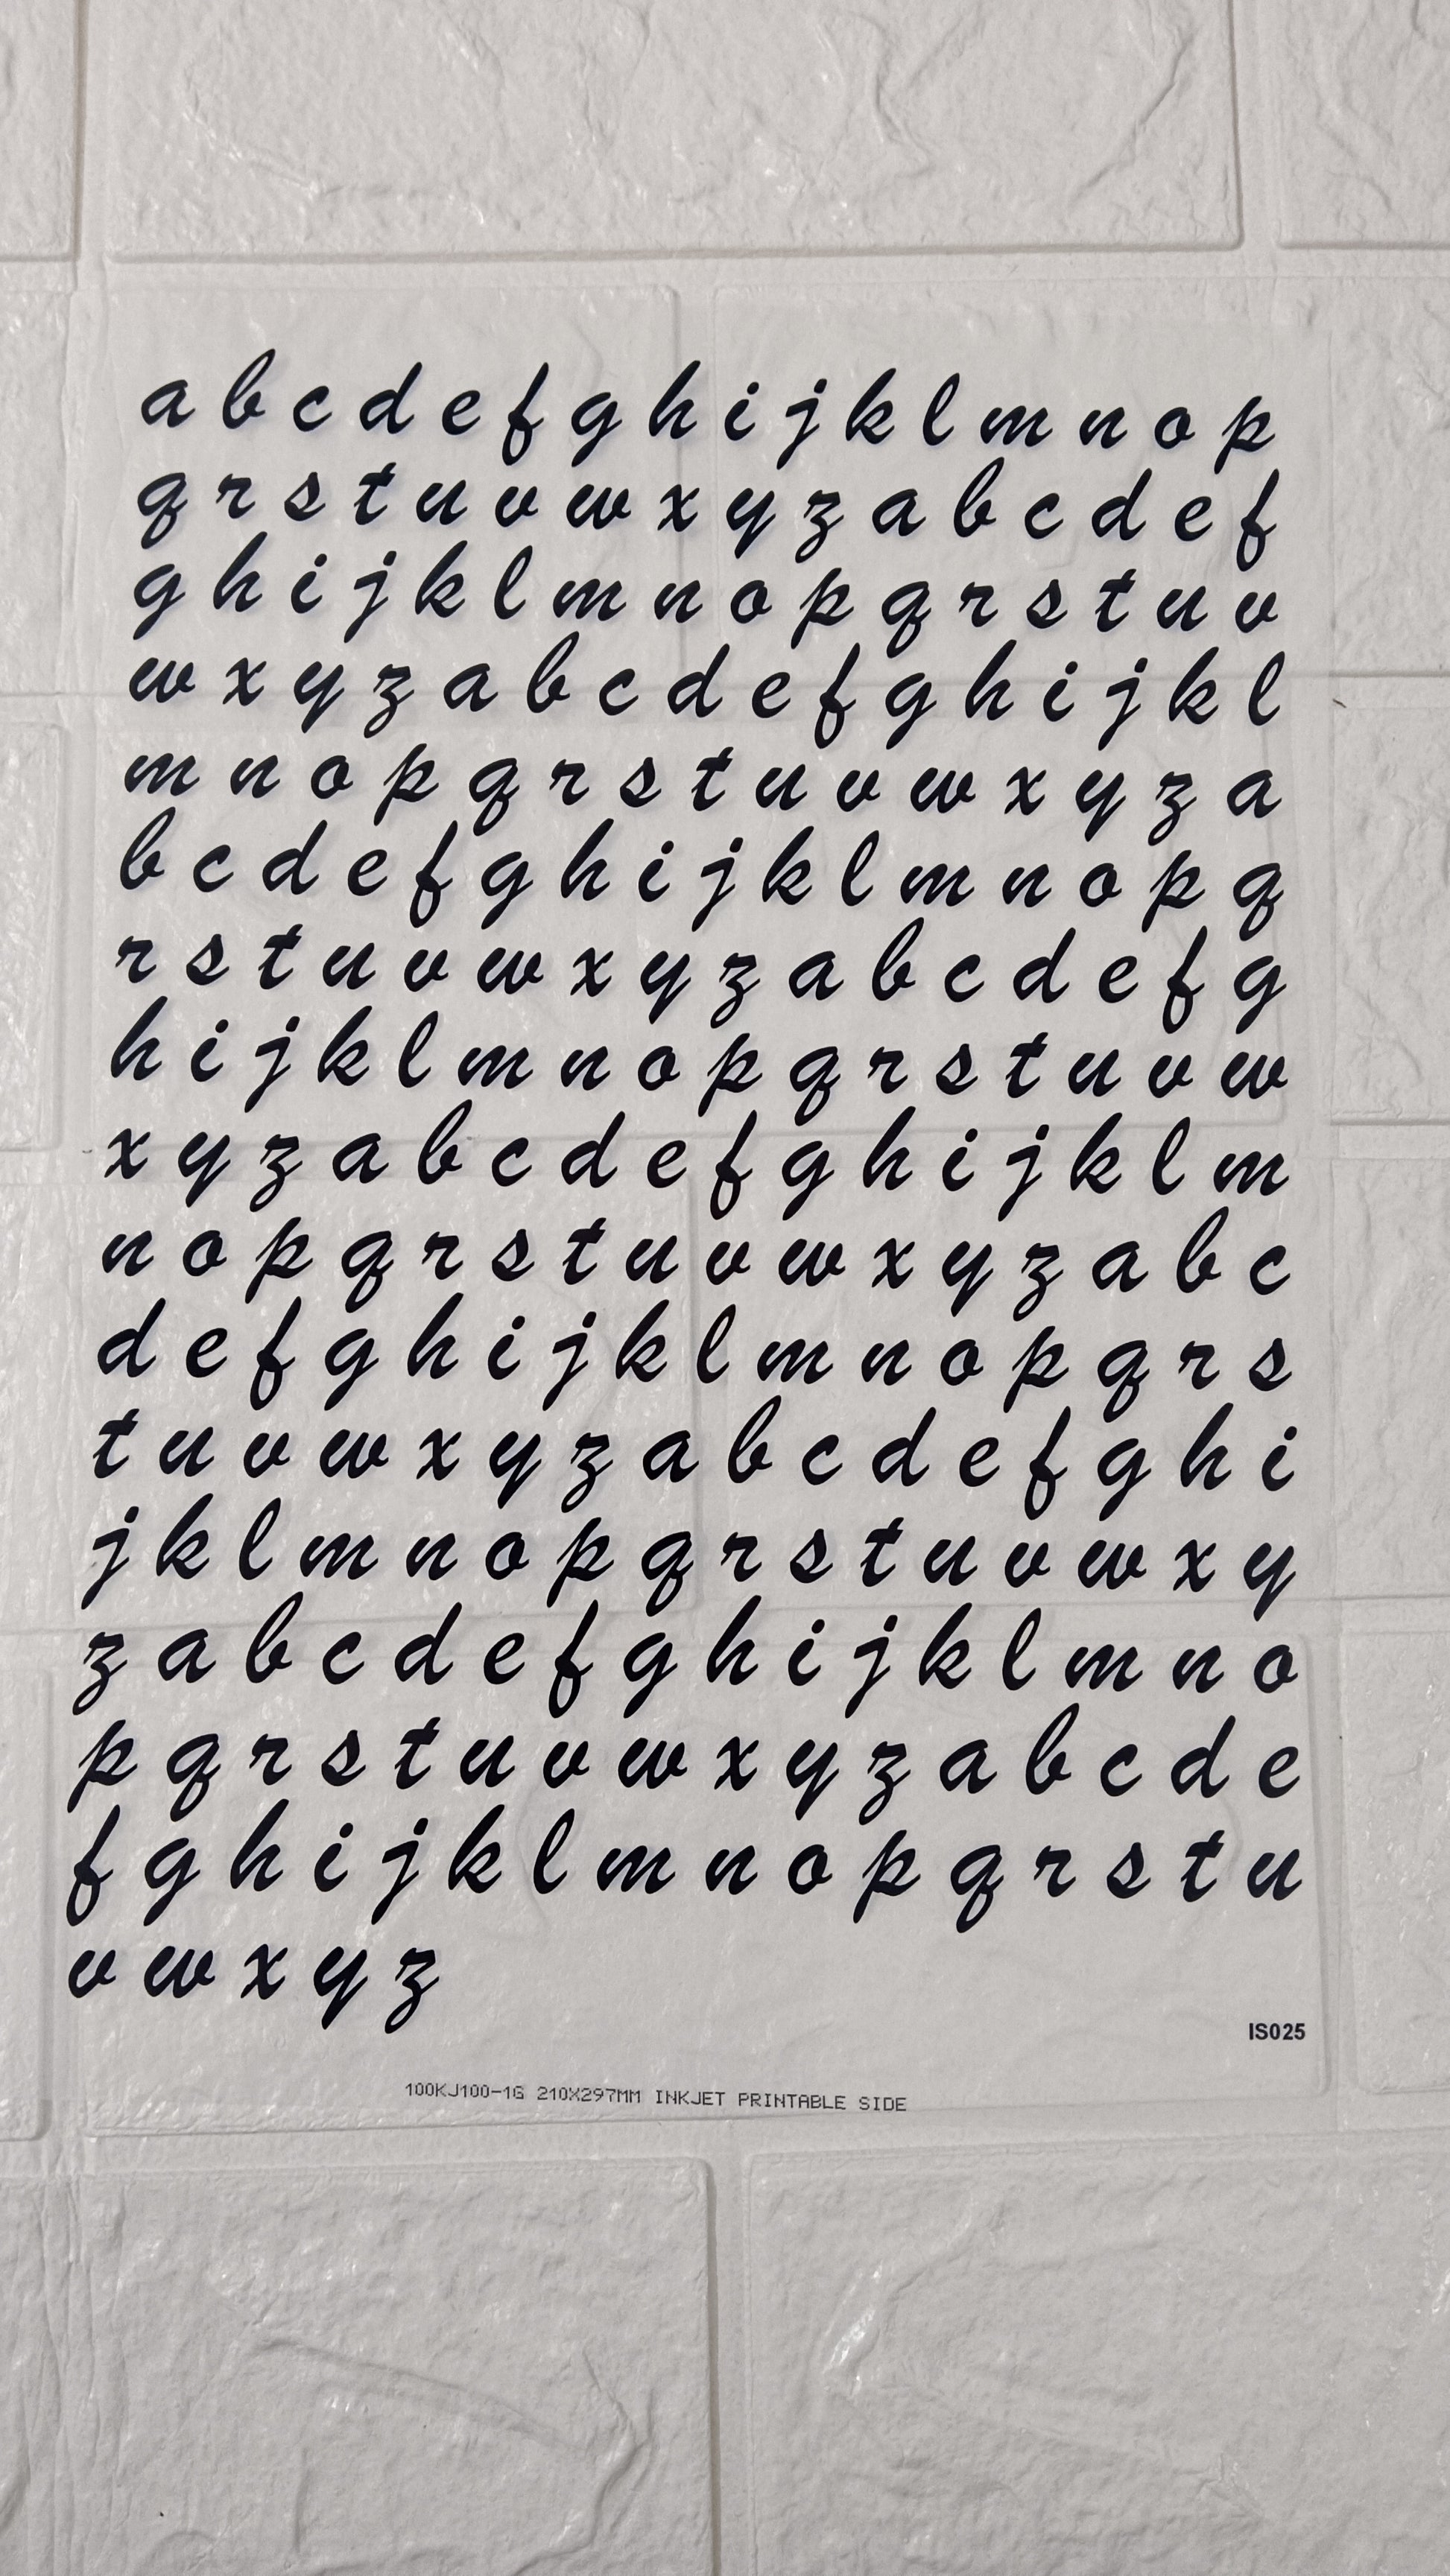 a b c d e f g h i j k l m n o p
q r s t u v w x y z a b c d e f
g h i j k l m n o p q r s t u v
w x y z a b c d e f g h i j k l
m n o p q r s t u v w x y z a
b c d e f g h i j k l m n o p q
r s t u v w x y z a b c d e f g
h i j k l m n o p q r s t u v w
x y z a b c d e f g h i j k l m
n o p q r s t u v w x y z a b c
d e f g h i j k l m n o p q r s
t u v w x y z a b c d e f g h i
j k l m n o p q r s t u v w x y
z a b c d e f g h i j k l m n o
p q r s t u v w x y z a b c d e
f g h i j k l m n o p q r s t u
v w x y z
IS025
100KJ100-1G 210X297MM INKJET PRINTABLE SIDE